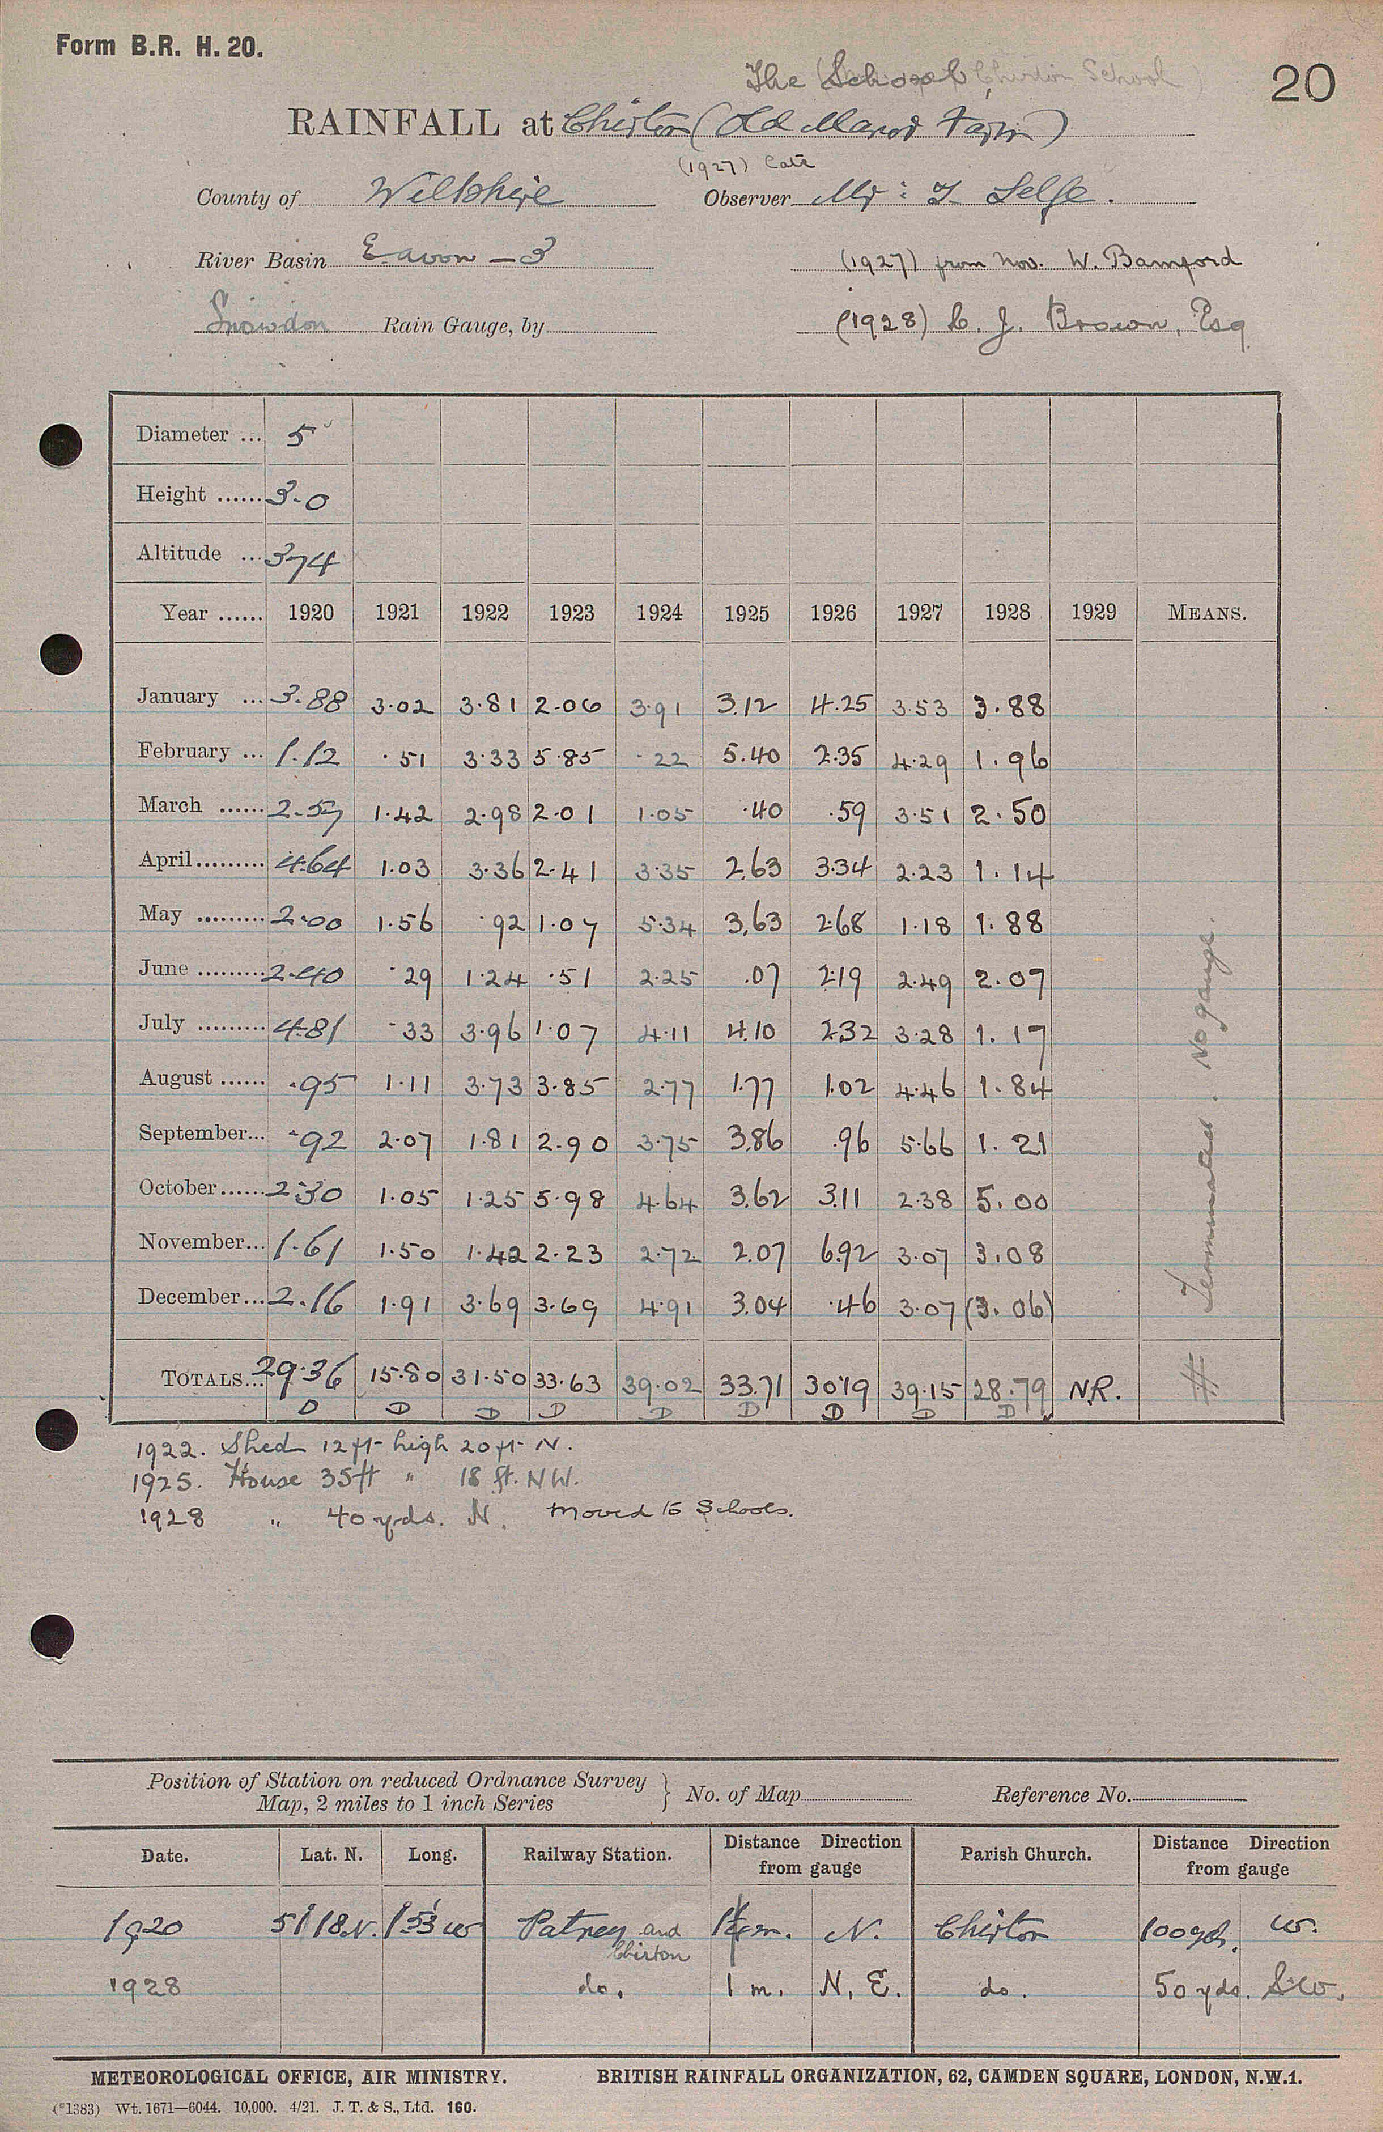 Form B.R. H. 20.
The School, (Chirton School)
20
RAINFALL at Chirton (Old Manor Farm)
(1927) late
County of Wiltshire Observer Mr: T Selfe.
River Basin E. avon — 3 (1927) from Nov. W. Bamford
Snowdon Rain Gauge, by (1928) C. J. Brown, Esq
Diameter ... 5"
Height ...... 3.0
Altitude ... 374
Year ...... 1920 1921 1922 1923 1924 1925 1926 1927 1928 1929 MEANS.
January ... 3.88 3.02 3.81 2.06 3.91 3.12 4.25 3.53 3.88
February ... 1.12 .51 3.33 5.85 .22 5.40 2.35 4.29 1.96
March ...... 2.57 1.42 2.98 2.01 1.05 .40 .59 3.51 2.50
April ......... 4.64 1.03 3.36 2.41 3.35 2.63 3.34 2.23 1.14
May ......... 2.00 1.56 .92 1.07 5.34 3.63 2.68 1.18 1.88
June ......... 2.40 .29 1.24 .51 2.25 .07 2.19 2.49 2.07
July ......... 4.81 .33 3.96 1.07 4.11 4.10 2.32 3.28 1.17
August ...... .95 1.11 3.73 3.85 2.77 1.77 1.02 4.46 1.84
September... .92 2.07 1.81 2.90 3.75 3.86 .96 5.66 1.21
October...... 2.30 1.05 1.25 5.98 4.64 3.62 3.11 2.38 5.00
November... 1.61 1.50 1.42 2.23 2.72 2.07 6.92 3.07 3.08
December... 2.16 1.91 3.69 3.69 4.91 3.04 .46 3.07 (3.06)
# Terminated. No gauge.
TOTALS... 29.36 15.80 31.50 33.63 39.02 33.71 30.19 39.15 28.79 N.R.
D D D D D D D D D
1922. Shed 12 ft. high 20 ft. N.
1925. House 35ft " 18 ft. NW.
1928 " 40 yds. N. Moved to Schools.
Position of Station on reduced Ordnance Survey
Map, 2 miles to 1 inch Series } No. of Map Reference No.
Date. Lat. N. Long. Railway Station. Distance Direction from gauge Parish Church. Distance Direction from gauge
1920 51°18'N. 1°53' W Patney and Chirton 1¼m. N. Chirton 100yds. W.
1928 do. 1 m. N. E. do. 50 yds. S.W.
METEOROLOGICAL OFFICE, AIR MINISTRY. BRITISH RAINFALL ORGANIZATION, 62, CAMDEN SQUARE, LONDON, N.W.1.
(*1383) Wt. 1671—6044. 10,000. 4/21. J. T. & S., Ltd. 160.